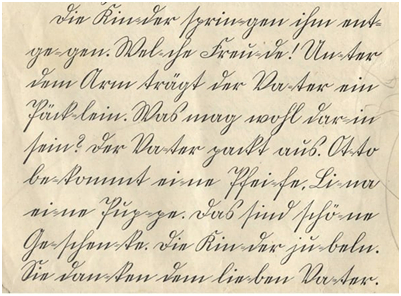 Die Kin-der sprin-gen ihm ent-
ge-gen. Wel-che Freu-de! Un-ter
dem Arm trägt der Va-ter ein
Päck-lein. Was mag wohl dar-in
sein? Der Va-ter packt aus. Ot-to
be-kommt ei-ne Pfei-fe. Li-na
ei-ne Pup-pe. Das sind schö-ne
Ge-schen-ke. Die Kin-der ju-beln.
Sie dan-ken dem lie-ben Va-ter.